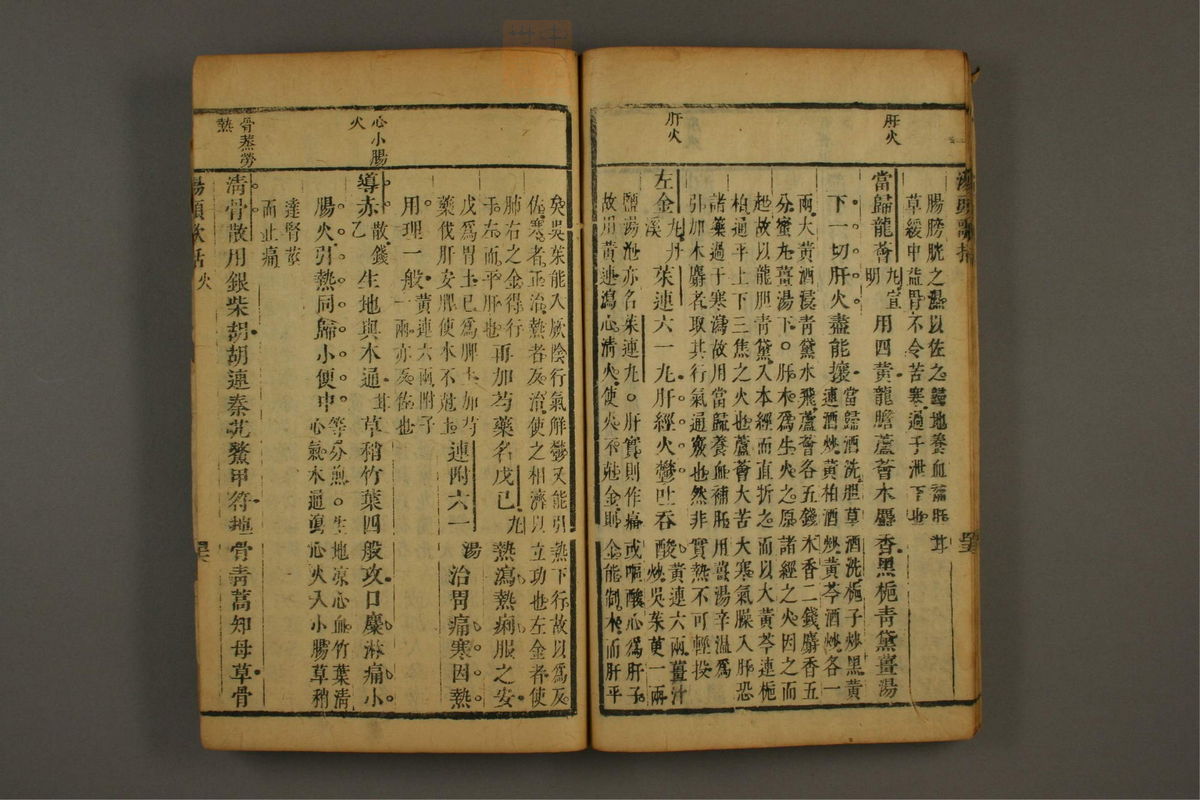 肝火
肝火
湯頭歌括
腸膀胱之濕以佐之歸地養血補肝甘
草緩中益腎不令苦寒過于泄下也
當歸龍薈丸宣明用四黃龍膽蘆薈木麝香黑梔青黛薑湯
下一切肝火盡能攘
當歸酒洗胆草酒洗梔子炒黑黃
連酒炒黃柏酒炒黃芩酒炒各一
兩大黃酒浸青黛水飛蘆薈各五錢木香二錢麝香五
分蜜丸薑湯下○肝木為生火之原諸經之火因之而
起故以龍胆青黛入本經而直折之而以大黃芩連梔
柏通平上下三焦之火也蘆薈大苦大寒氣臊入肝恐
諸藥過于寒瀉故用當歸養血補肝用薑湯辛溫為
引加木麝者取其行氣通竅也然非實熱不可輕投
左金丸丹溪茱連六一丸肝經火鬱吐吞酸
黃連六兩薑汁
炒吳茱萸一兩
鹽湯泡亦名茱連丸○肝實則作痛或嘔酸心為肝子
故用黃連瀉心清火使火不剋金則金能制木而肝平
心小腸火
骨蒸勞熱
矣吳茱能入厥陰行氣解鬱又能引熱下行故以為反
佐寒者正治熱者反治使之相濟以立功也左金者使
肺右之金得行
于左而平肝也
再加芍藥名戊己丸熱瀉熱痢服之安
戊為胃土己為脾土加芍
藥伐肝安脾使木不剋土
連附六一湯治胃痛寒因熱
用理一般
黃連六兩附子
一兩亦反佐也
導赤散錢乙生地與木通甘草稍竹葉四般攻口糜淋痛小
腸火引熱同歸小便中
等分煎○生地凉心血竹葉清
心氣木通瀉心火入小腸草稍
達腎莖
而止痛
清骨散用銀柴胡胡連秦艽鱉甲符地骨青蒿知母草骨
湯頭歌括 火